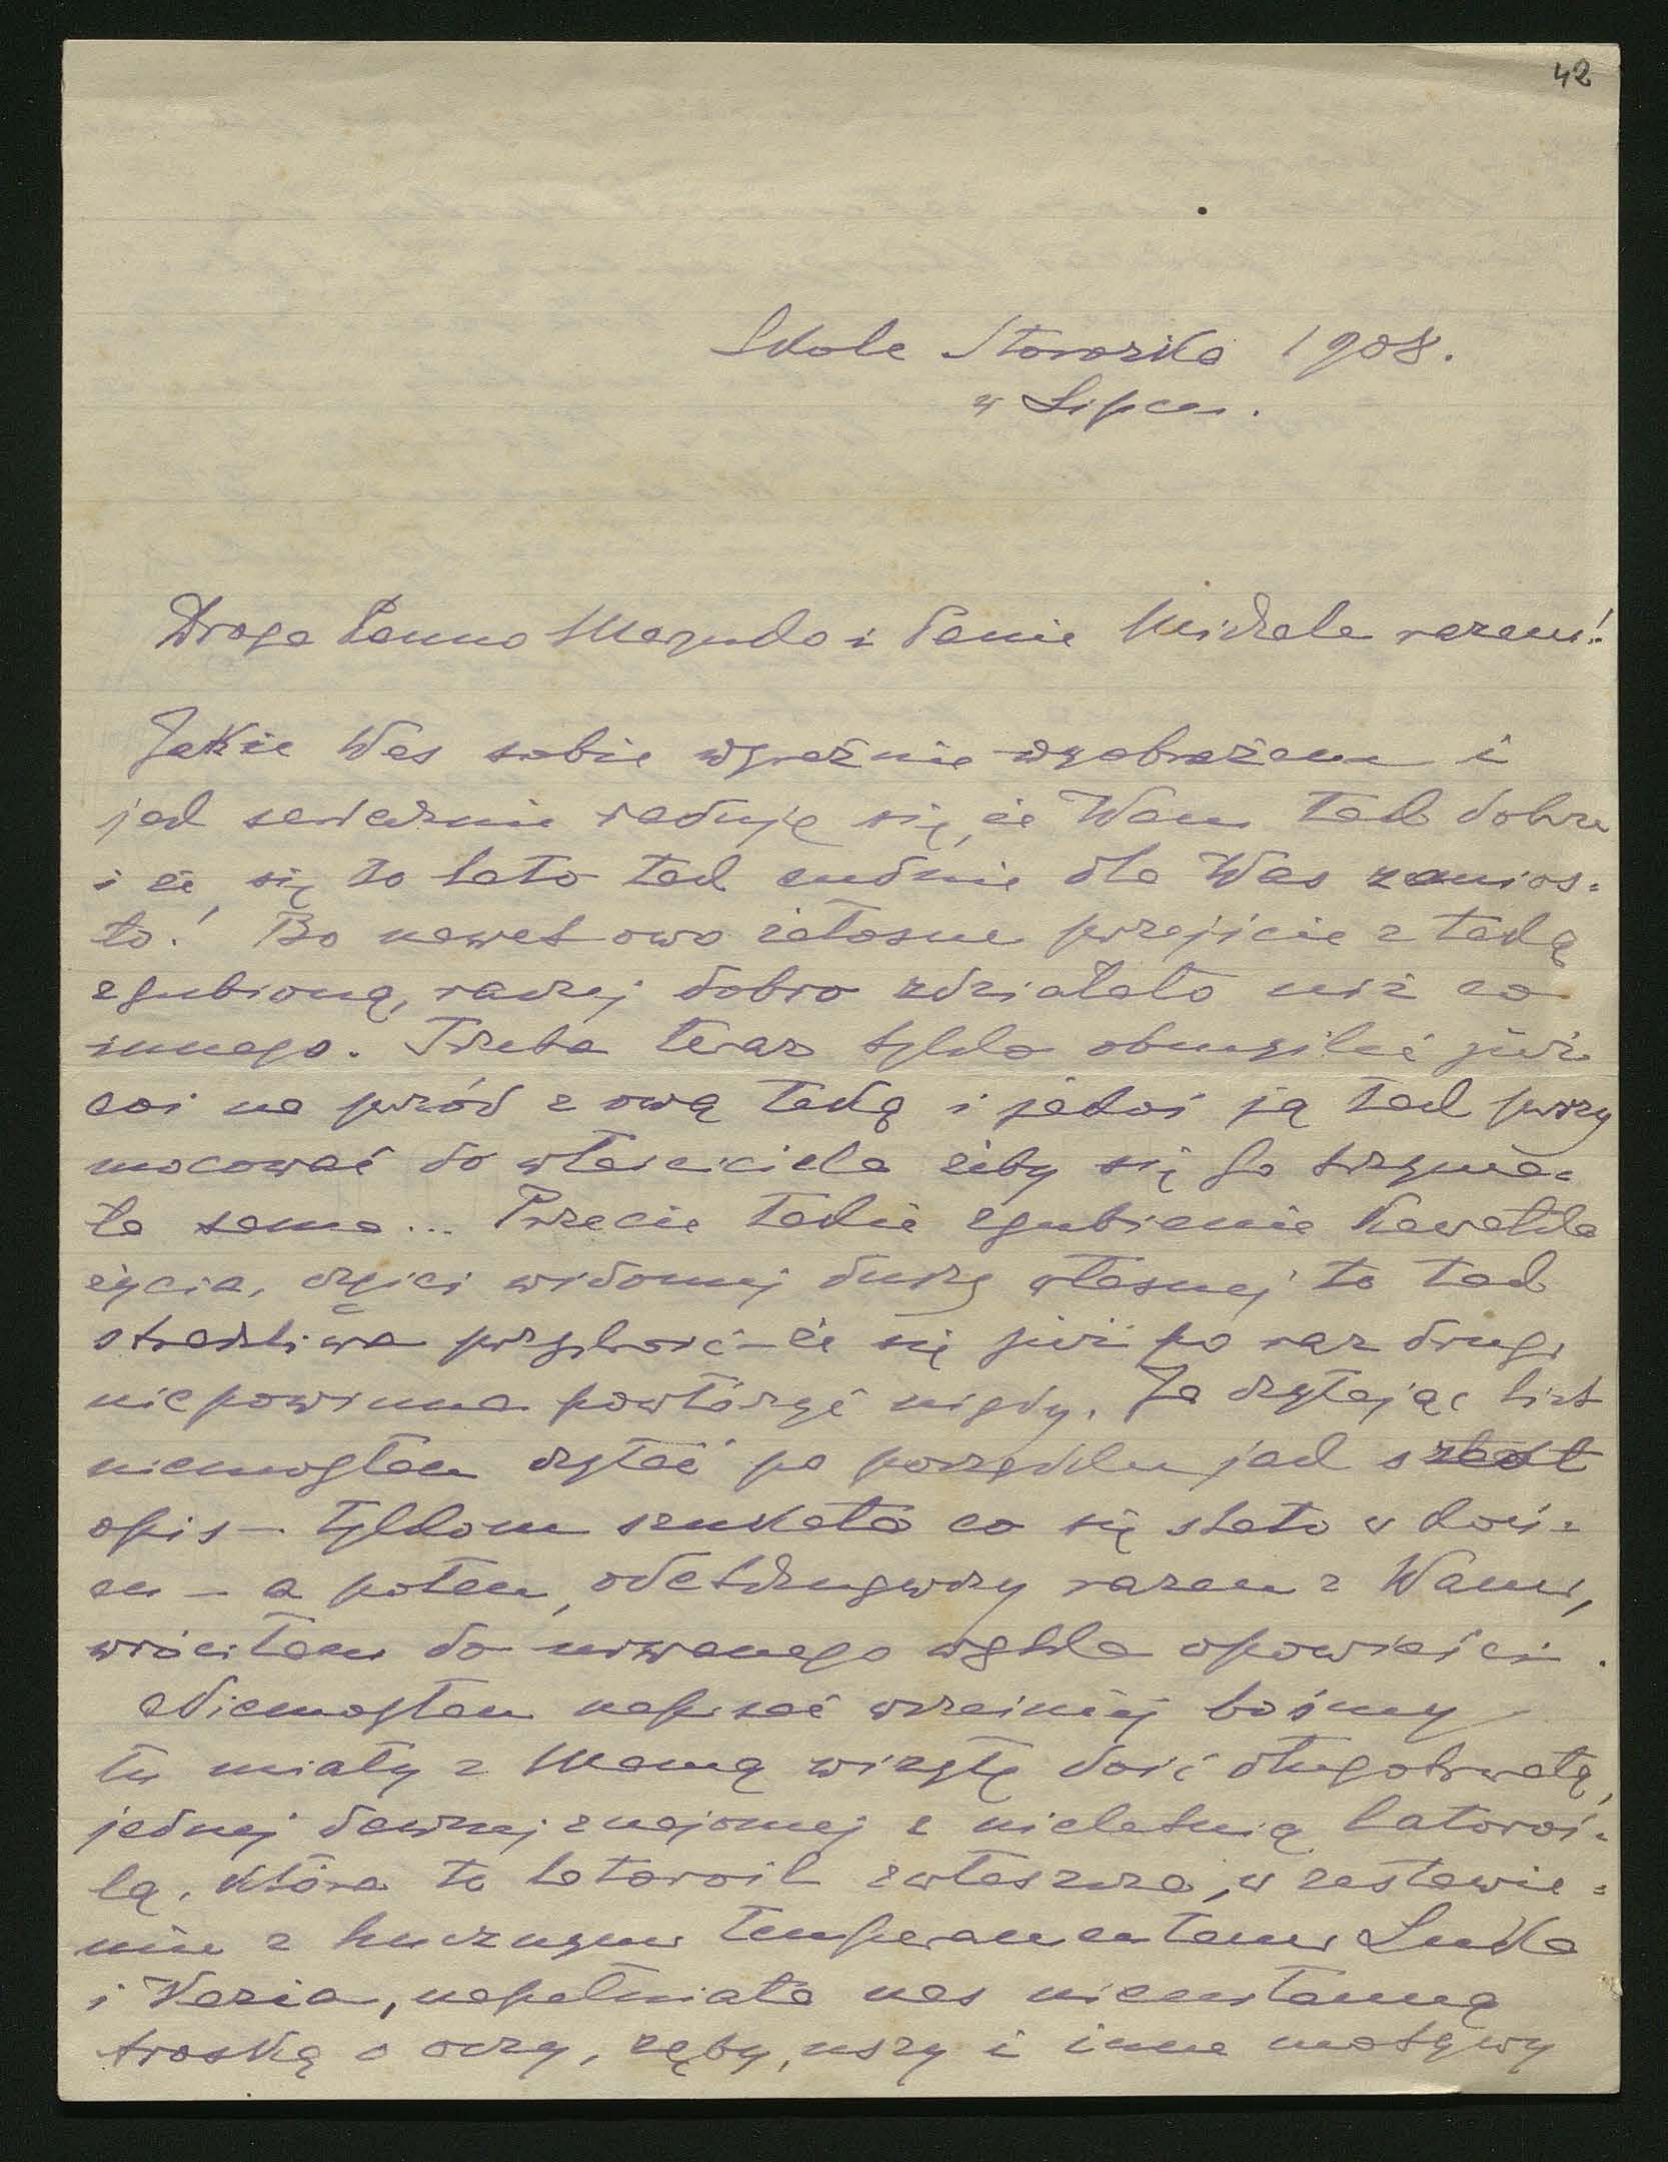 42
Skole Storożka 1908.
w Lipcu.
Droga Panno Magudo i Panie Michale razem!
Jakże Was sobie wyraźnie wyobrażam i
jak serdecznie raduję się, że Wam tak dobrze
i że się to lato tak cudnie dla Was zanios=
ło! Bo nawet owo żałosne przejście z teką
zgubioną, raczej dobro zdziałało niż co
innego. Trzeba teraz tylko obmyśleć już
coś na przód z ową teką i jakoś ją tak przy
mocować do właściciela żeby się go trzyma=
ła sama... Przecie takie zgubienie kawałka
życia, części widomej duszy własnej to tak
straszliwa przykrość – że się już po raz drugi
nie powinna powtórzyć nigdy. Ja czytając list
niemogłam czytać po porządku jak szedł
opis – tylkom szukała co się stało w koń=
cu – a potem, odetchnąwszy razem z Wami,
wróciłam do urwanego wątka opowieści.
Niemogłam napisać wcześniej bośmy
tu miały z Mamą wizytę dość długotrwałą,
jednej dawnej znajomej z nieletnią latoroś=
lą, która to latorośl zwłaszcza, w zestawie=
niu z hucznym temperamentem Lulka
i Kazia, napełniała nas nieustanną
troską o oczy, zęby, uszy i inne motywy